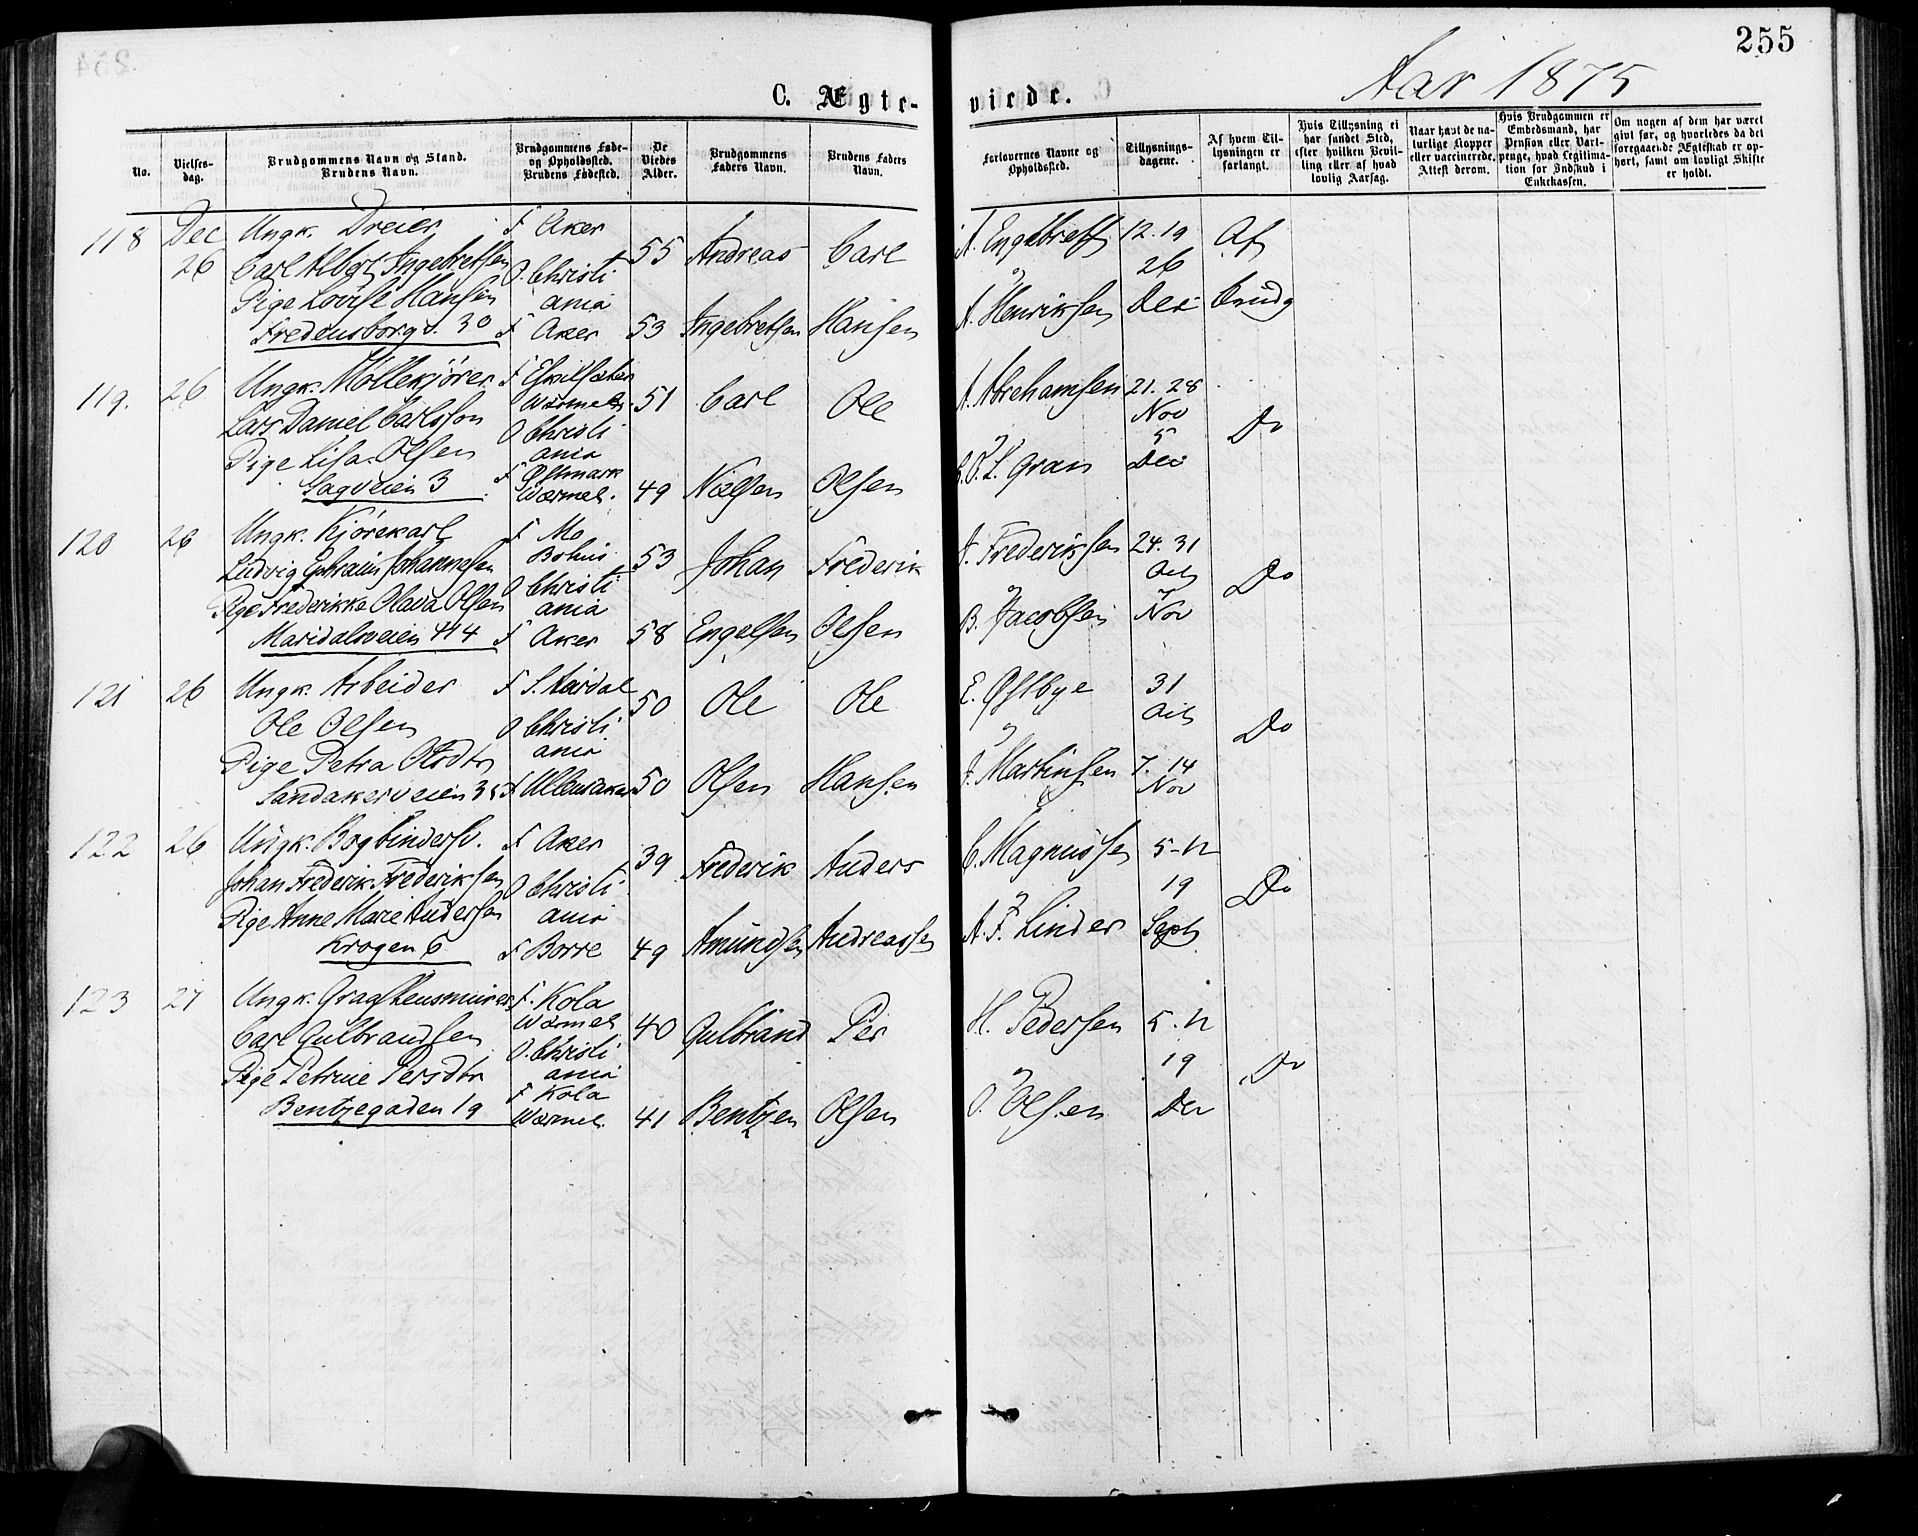 255
C. Ægte-
viede.
Aar 1875
No.
Vielses-
dag.
Brudgommens Navn og Stand.
Brudens Navn.
Brudgommens Føde-
og Opholdssted.
Brudens Fødested.
De
Viedes
Alder.
Brudgommens
Faders Navn.
Brudens Faders
Navn.
Forlovernes Navne og
Opholdssted.
Tillysnings-
dagene.
Af hvem Til-
lysningen er
forlangt.
Hvis Tillysning ei
har fundet Sted,
efter hvilken Bevil-
ling eller af hvad
lovlig Aarsag.
Naar havt de na-
turlige Kopper
eller vaccinerede.
Attest derom.
Hvis Brudgommen er
Embedsmand, har
Pension eller Vart-
penge, hvad Legitima-
tion for Indskud i
Enkekassen.
Om nogen af dem har været
givt før, og hvorledes da det
foregaaende Ægteskab er op-
hørt, samt om lovligt Skifte
er holdt.
118
Dec
26
Ungk. Dreier
Carl Albert Ingebretsen
Pige Lovise Hansen
Fredensborgv. 30
F Aker
O. Christi
ania
F Aker
55
53
Andreas
Ingebretsen
Carl
Hansen
A. Engebrets
o
A. Henriksen
12. 19
26
Dec
Af
Brudg
119.
26
Ungk. Møllekjører
Lars Daniel Carlsson
Pige Lisa Olsen
Sagveien 3
F Eskilsæter
Wermel.
O Christi
ania
F Østmark
Wermel.
51
49
Carl
Nielsen
Ole
Olsen
A. Abrehamsen
o
O. L. Gran
21. 28
Nov
5
Dec
Do
120
26
Ungk. Kjørekarl
Ludvig Ephraim Johannesen
Pige Frederikke Olava Olsen
Maridalsveien 44
F Mo
Bohus
O Christi
ania
F Aker
53
58
Johan
Engelsen
Frederik
Olsen
J. Frederiksen
o
B. Jacobsen
24. 31
Oct
7
Nov
Do
121
26
Ungk. Arbeider
Ole Olsen
Pige Petra Olsdtr
Sandakerveien
F S. Aurdal
O Christi
ania
F Ullensaker
50
50
Ole
Olsen
Ole
Hansen
E. Østbye
o
J. Martinsen
31
Oct
7. 14
Nov
Do
122
26
Ungk. Bogbindersv.
Johan Frederik Frederiksen
Pige Anne Marie Andersen
Krogen 6
F Aker
O Christi
ania
F Borre
39
49
Frederik
Amundsen
Anders
Andreassen
C. Magnussen
o
A. F. Linder
5-12
19
Sept
Do
123
27
Ungk.
Carl Gulbrandsen
Pige Petrine Persdtr
Bentzegaden 19
F. Kola
Wermel.
O. Christi
ania
F Kola
Wermel.
40
41
Gulbrand
Bentzen
Per
Olsen
H. Pedersen
o
O. Olsen
5. 12
19
Dec
Do